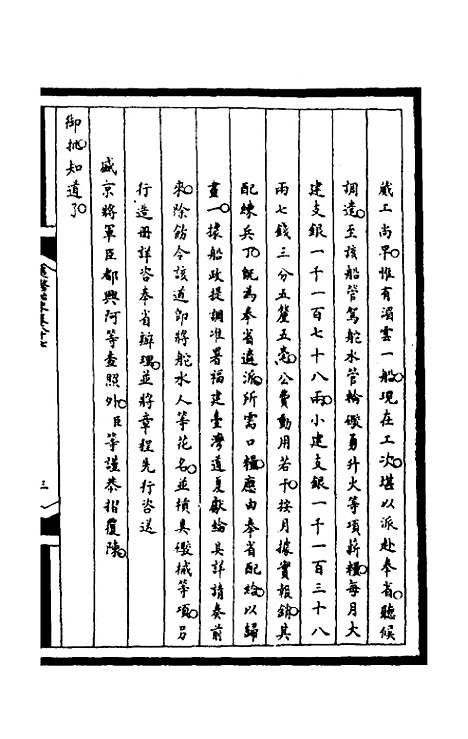 蕆工尚早惟有湄雲一船現在工次堪以派赴奉省聽候
調遣至該船管駕舵水管輪礮勇升火等項薪糧每月大
建支銀一千一百七十八兩小建支銀一千一百三十八
兩七錢三分五釐五毫公費動用若干按月據實報銷其
配練兵丁旣為奉省遣派所需口糧應由奉省配給以歸
畫一據船政提調准署福建臺灣道夏獻綸具詳請奏前
來除飭令該道卽將舵水人等花名並槓具礮械等項另
行造冊詳咨奉省辦理並將章程先行咨送
盛京將軍臣都興阿等查照外臣等謹恭摺覆陳
御批知道了
三